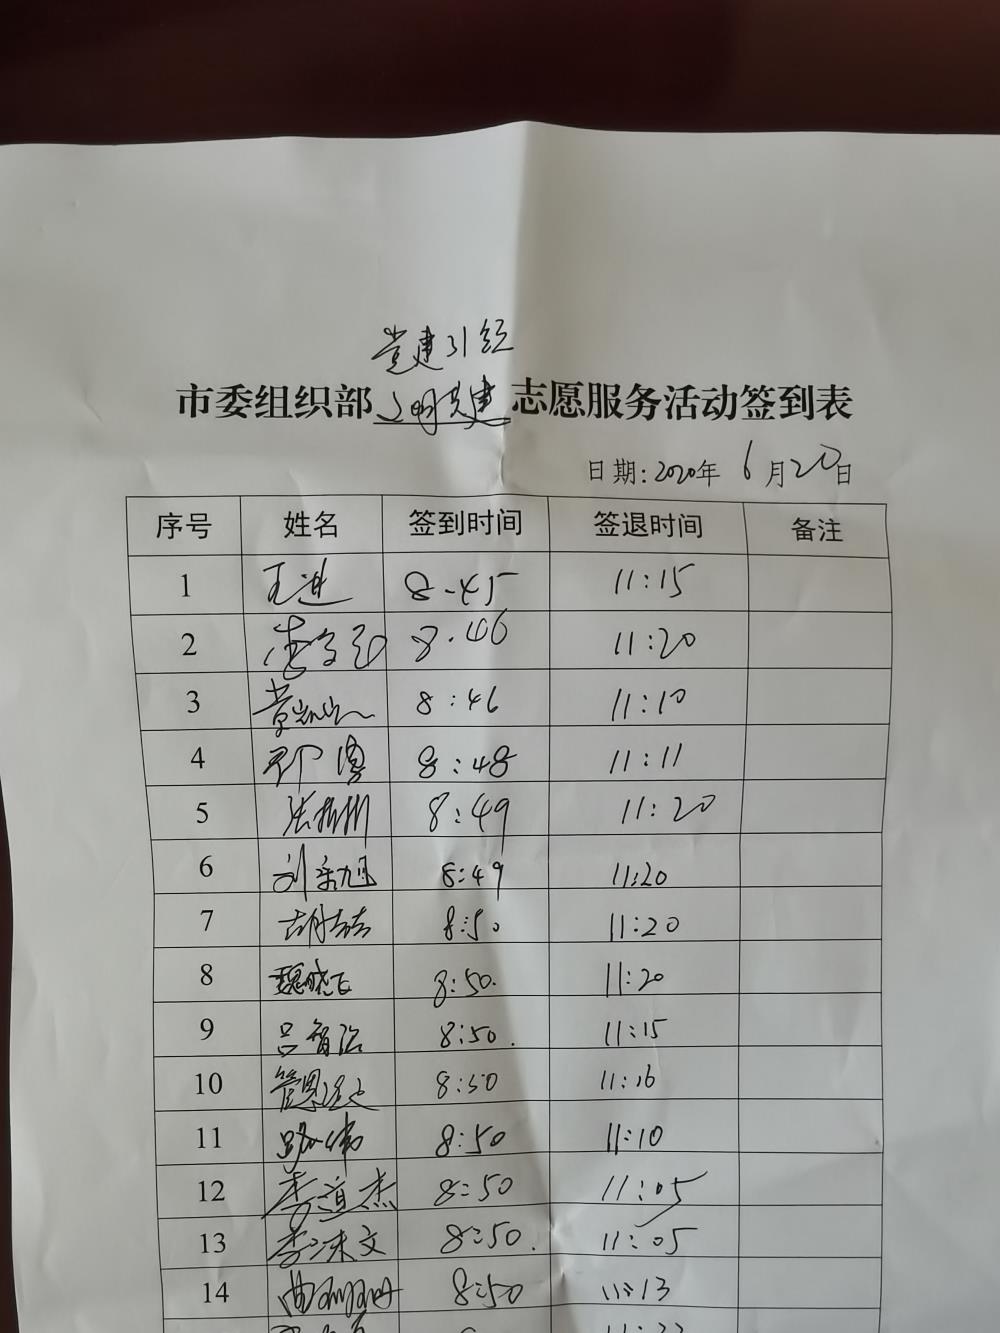 党建引领
市委组织部文明共建志愿服务活动签到表
日期:2020年 6月20日
序号 姓名 签到时间 签退时间 备注
1 王进 8.45 11:15
2 8.46 11:20
3 8:46 11:10
4 8:48 11:11
5 8:49 11:20
6 刘 旭 8:49 11:20
7 胡喆 8:50 11:20
8 魏晓飞 8:50. 11:20
9 吕智 8:50. 11:15
10 管恩 8:50 11:16
11 路伟 8:50 11:10
12 李道杰 8:50 11:05
13 李沫文 8:50. 11:05
14 曲珊珊 8:50 11:13